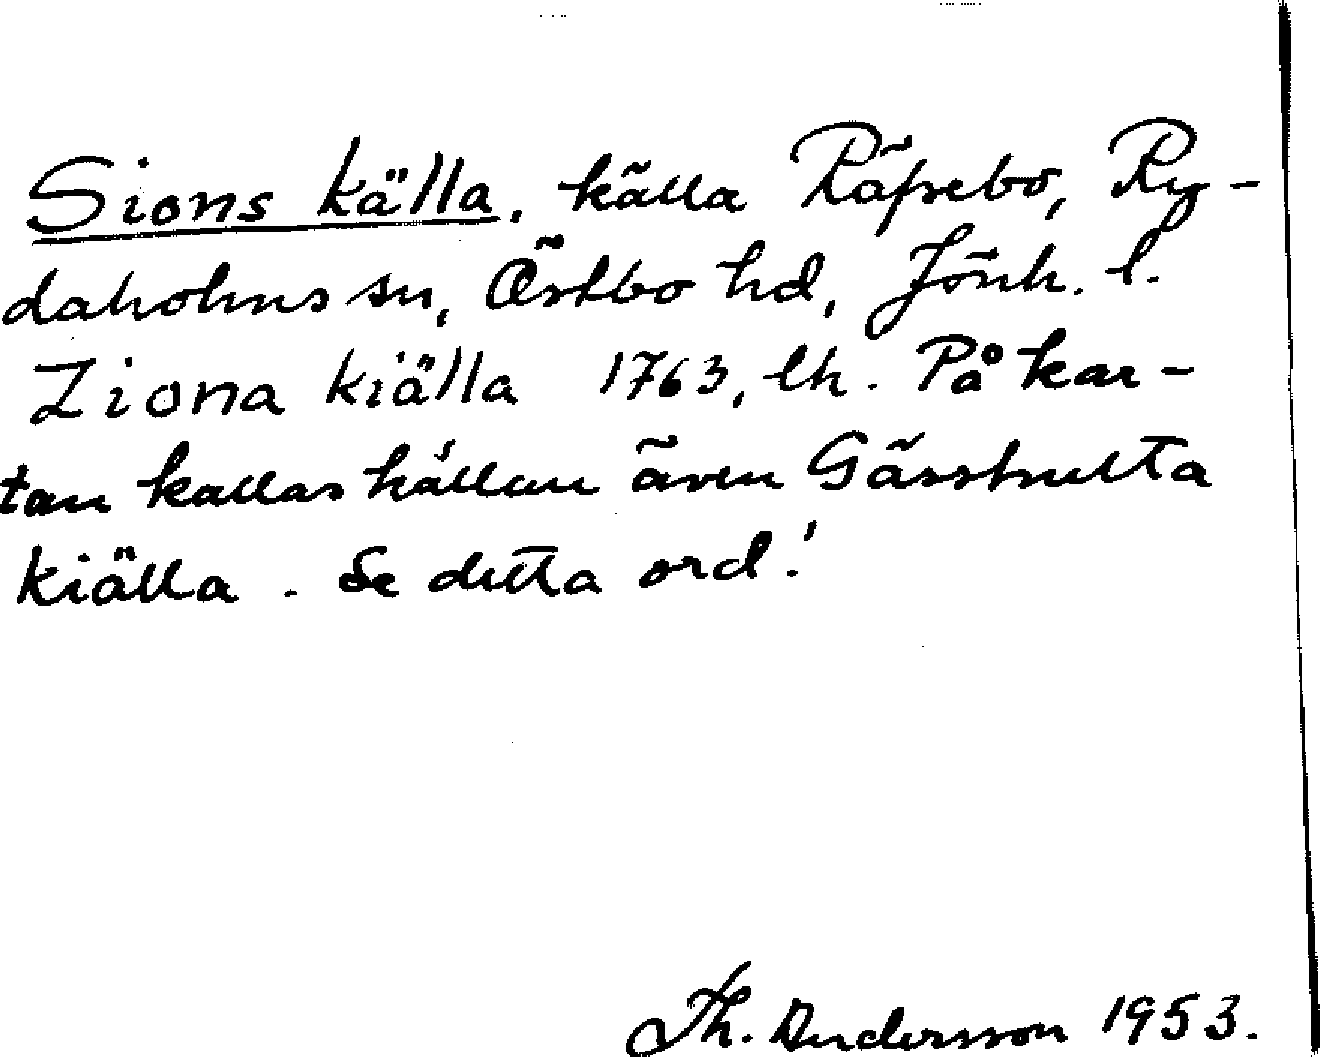 Sions källa, källa Räpsebo, Ry-
daholms sn, Östbo hd, Jönk. l.
Ziona kiälla 1763, lh. På kar-
tan kallas källan även Gässhulta
kiälla. Se detta ord!
Th. Andersson 1953.